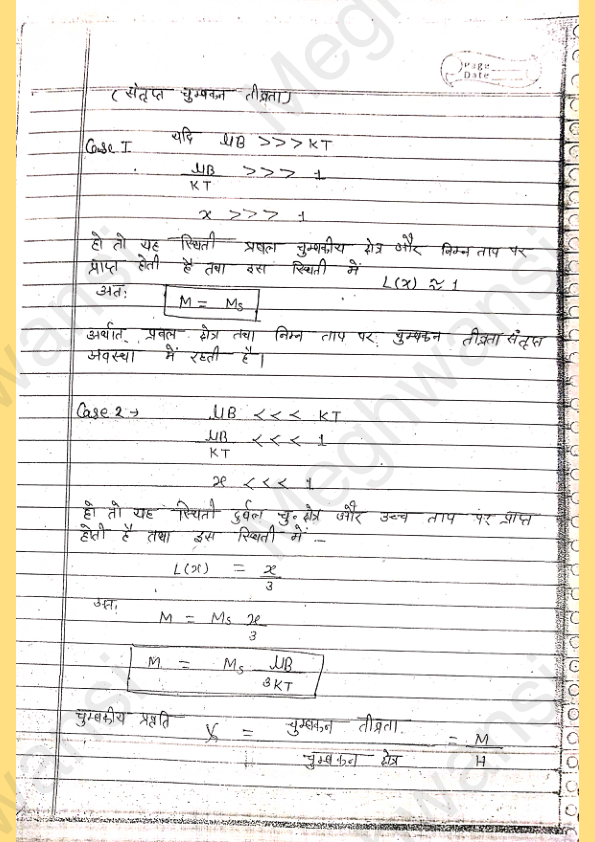 Page
Date
(संतृप्त चुम्बकन तीव्रता)
Case I यदि μB >>> KT
μB/KT >>> 1
x >>> 1
हो तो यह स्थिती प्रबल चुम्बकीय क्षेत्र और निम्न ताप पर
प्राप्त होती है तथा इस स्थिती में L(x) ≈ 1
अतः M = Ms
अर्थात् प्रबल क्षेत्र तथा निम्न ताप पर चुम्बकन तीव्रता संतृप्त
अवस्था में रहती है।
Case 2 → μB <<< KT
μB/KT <<< 1
x <<< 1
हो तो यह स्थिती दुर्बल चु॰ क्षेत्र और उच्च ताप पर प्राप्त
होती है तथा इस स्थिती में :-
L(x) = x/3
अतः
M = Ms x/3
M = Ms μB/3KT
चुम्बकीय प्रवृति χ = चुम्बकन तीव्रता/चुम्बकन क्षेत्र = M/H
Meghwansi